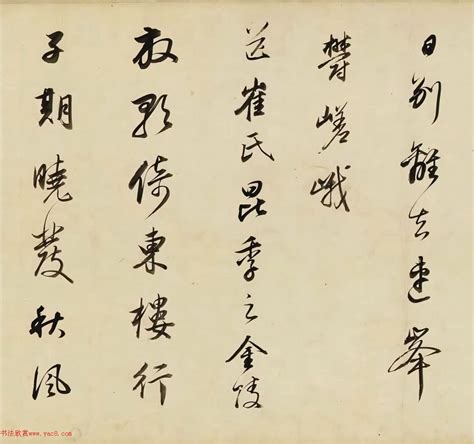 日别離去連峯
欝嵯峨
送崔氏昆季之金陵
放歌倚東樓行
子期曉發秋風
书法欣赏www.yac8.com